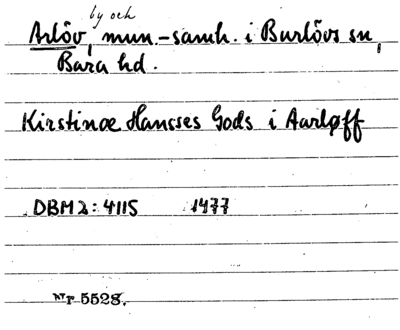 by och
Arlöv, mun.-samh. i Burlövs sn,
Bara hd.
Kirstinæ Hansses Gods i Aarløff
DBM2: 4115 1477
Nr 5528.